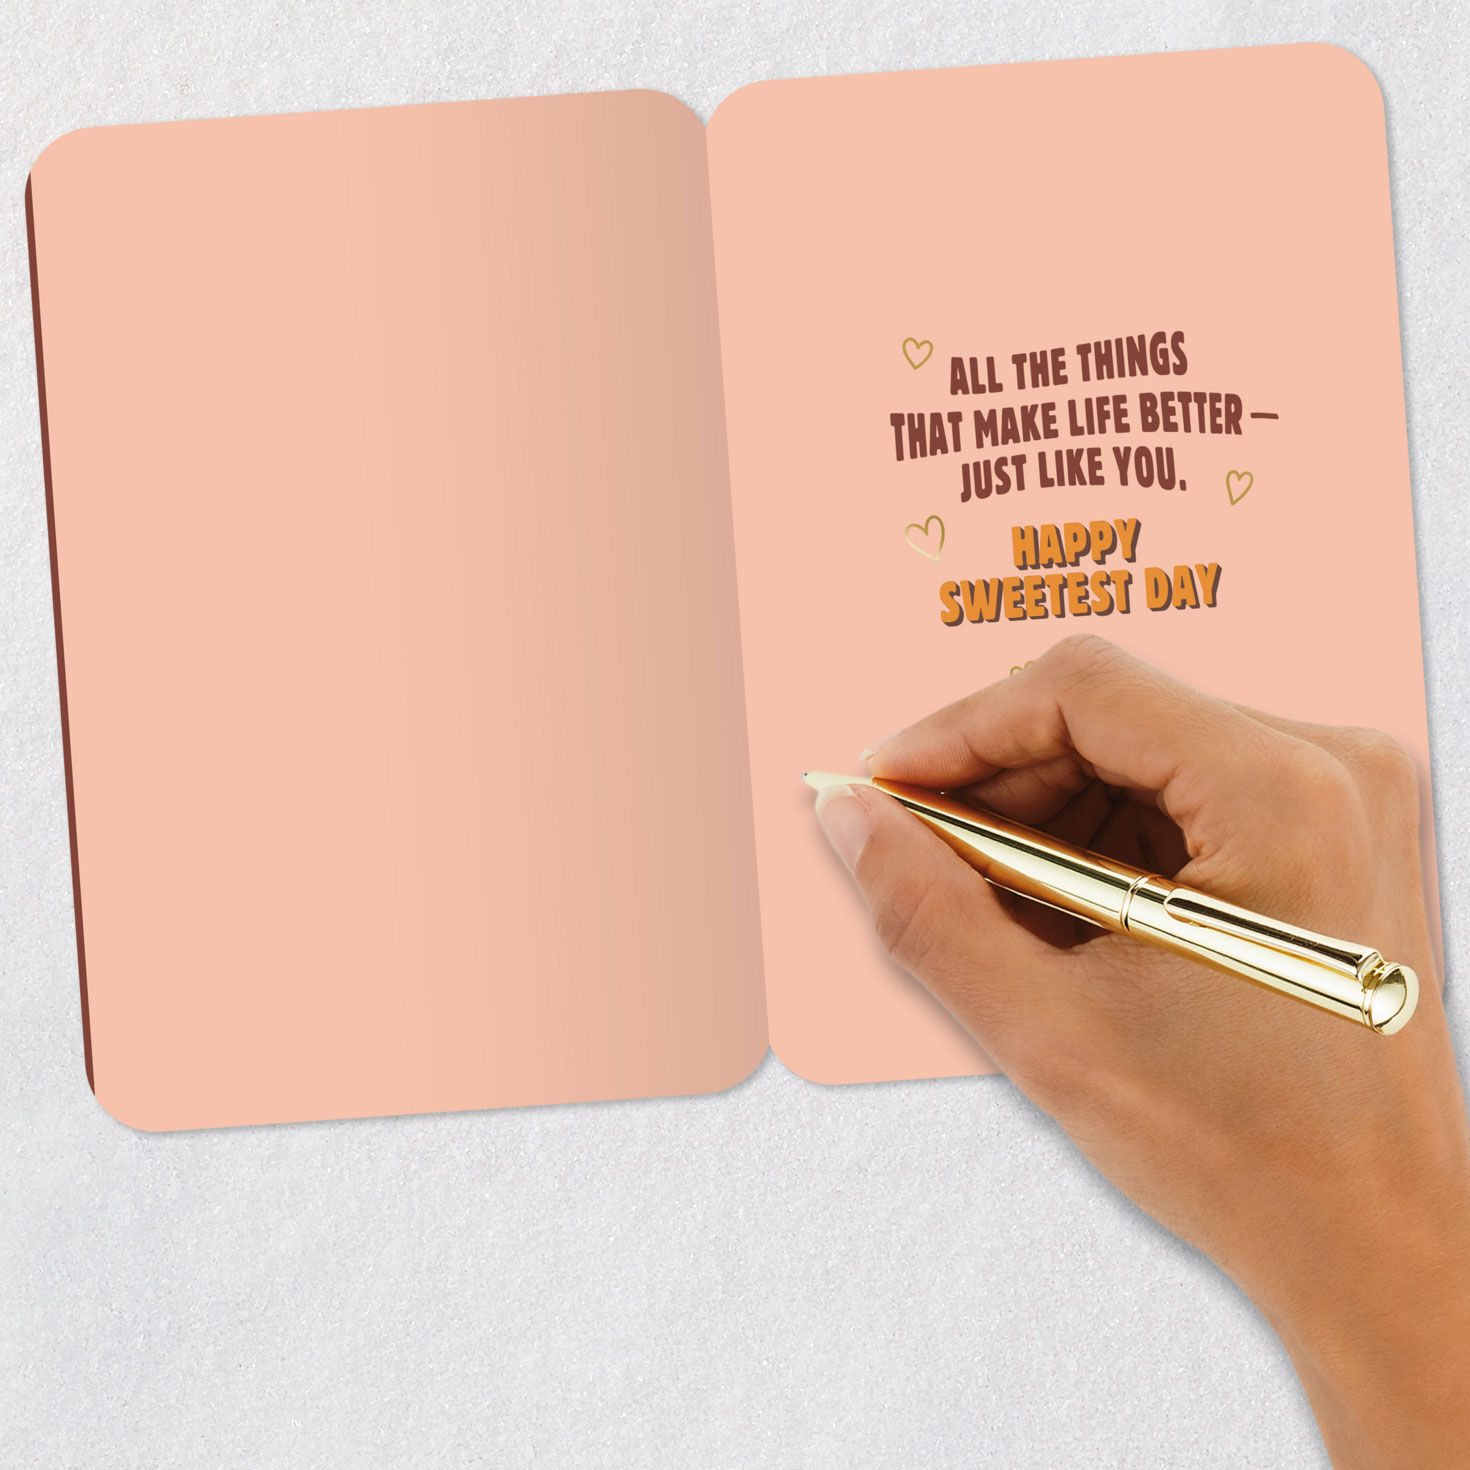 ALL THE THINGS
THAT MAKE LIFE BETTER —
JUST LIKE YOU.
HAPPY
SWEETEST DAY